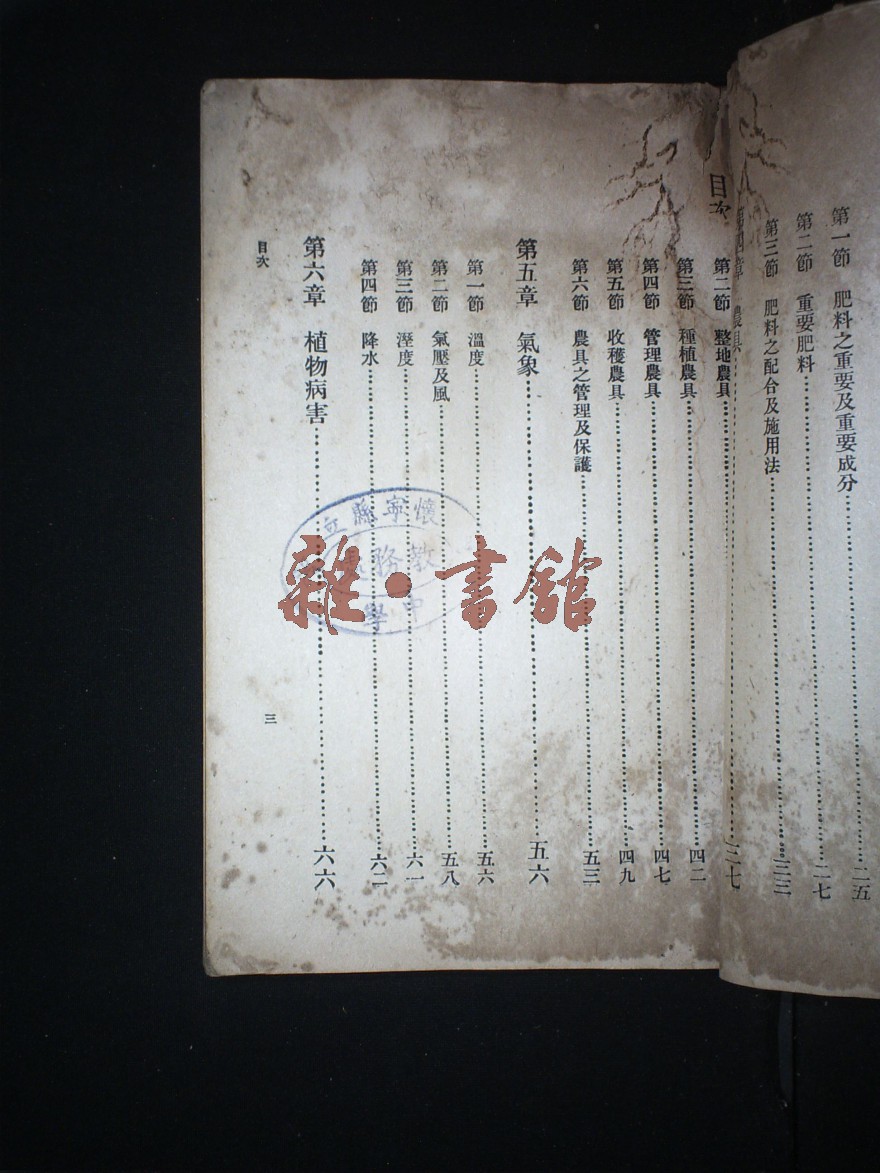 目次
第一節　肥料之重要及重要成分……二五
第二節　重要肥料……二七
第三節　肥料之配合及施用法……三三
目次
第二節　整地農具……三七
第三節　種植農具……四二
第四節　管理農具……四七
第五節　收穫農具……四九
第六節　農具之管理及保護……五三
第五章　氣象……五六
第一節　溫度……五六
第二節　氣壓及風……五八
第三節　溼度……六一
第四節　降水……六二
第六章　植物病害……六六
三
懷寧縣立
教務
中學
雜・書館